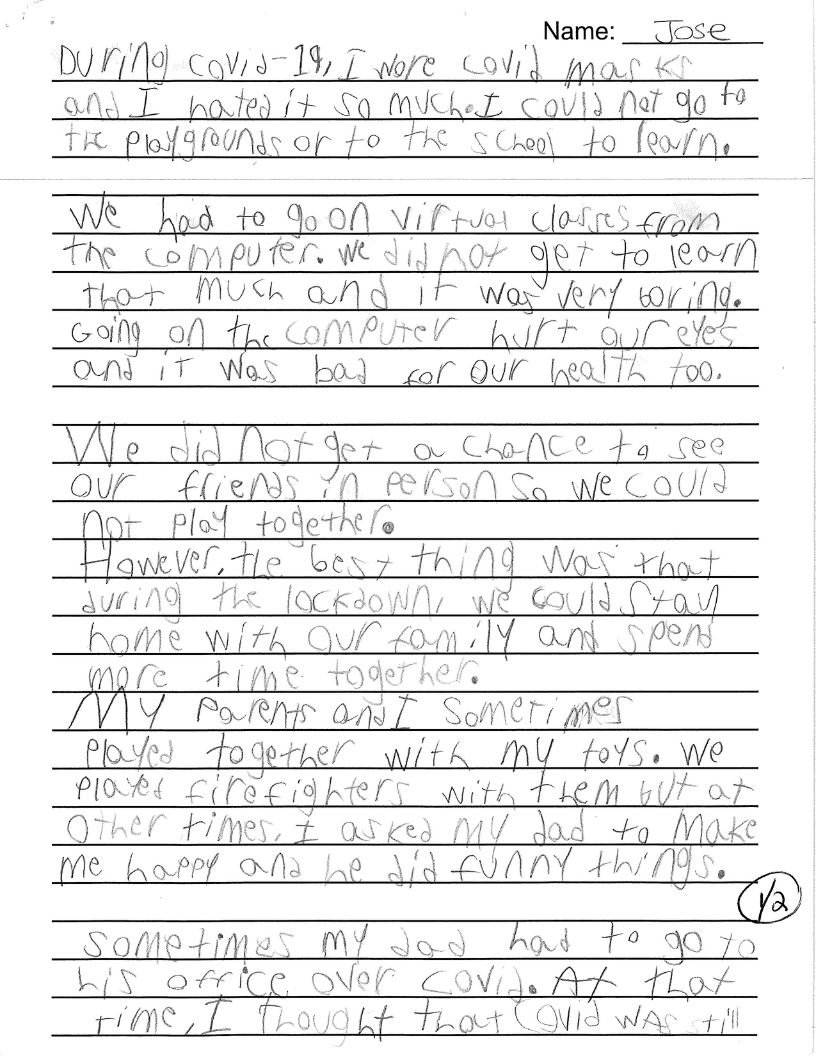 Name: Jose
During covid-19, I wore covid masks
and I hated it so much. I could not go to
the playgrounds or to the school to learn.
We had to go on virtual classes from
the computer. we did not get to learn
that much and it was very boring.
Going on the computer hurt our eyes
and it was bad for our health too.
We did not get a chance to see
our friends in person so we could
not play together.
However, the best thing was that
during the lockdown, we could stay
home with our family and spend
more time together.
My parents and I sometimes
played together with my toys. We
played firefighters with them but at
other times, I asked my dad to make
me happy and he did funny things.
1/2
sometimes my dad had to go to
his office over covid. At that
time, I thought that covid was still